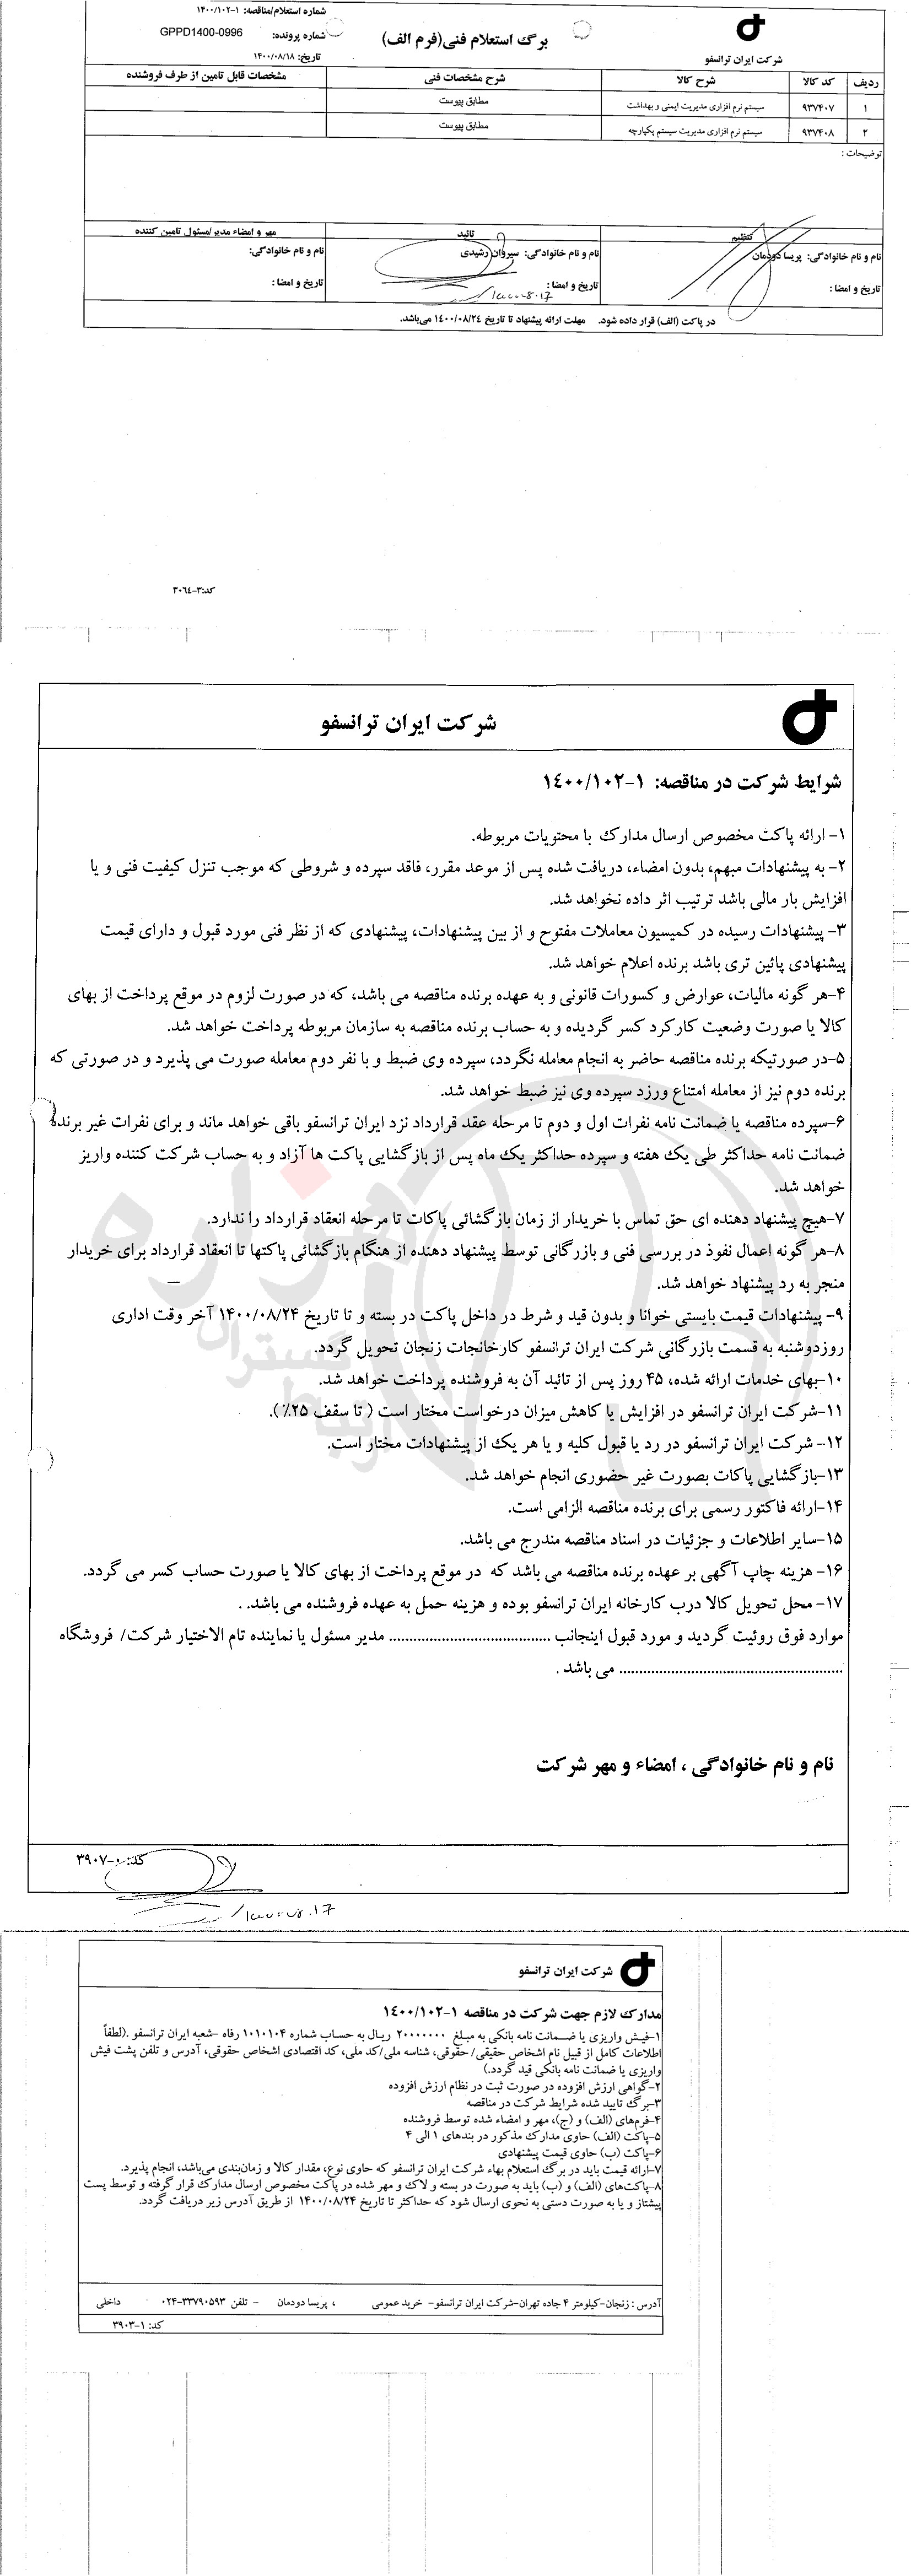 شماره استعلام/مناقصه: ۱-۱۴۰۰/۱۰۲
شماره پرونده: GPPD1400-0996
تاریخ: ۱۴۰۰/۰۸/۱۸
برگ استعلام فنی(فرم الف)
شرکت ایران ترانسفو
ردیف کد کالا شرح کالا شرح مشخصات فنی مشخصات قابل تامین از طرف فروشنده
۱ ۹۳۷۴۰۷ سیستم نرم افزاری مدیریت ایمنی و بهداشت مطابق پیوست
۲ ۹۳۷۴۰۸ سیستم نرم افزاری مدیریت سیستم یکپارچه مطابق پیوست
توضیحات :
تنظیم تائید مهر و امضاء مدیر/مسئول تامین کننده
نام و نام خانوادگی: پریسا دودمان نام و نام خانوادگی: سیروان رشیدی نام و نام خانوادگی:
تاریخ و امضا : تاریخ و امضا : تاریخ و امضا :
در پاکت (الف) قرار داده شود. مهلت ارائه پیشنهاد تا تاریخ ۱۴۰۰/۰۸/۲۴ می‌باشد.
کد:۳-۳۰۶۴
شرکت ایران ترانسفو
شرایط شرکت در مناقصه: ۱-۱۴۰۰/۱۰۲
۱- ارائه پاکت مخصوص ارسال مدارک با محتویات مربوطه.
۲- به پیشنهادات مبهم، بدون امضاء، دریافت شده پس از موعد مقرر، فاقد سپرده و شروطی که موجب تنزل کیفیت فنی و یا
افزایش بار مالی باشد ترتیب اثر داده نخواهد شد.
۳- پیشنهادات رسیده در کمیسیون معاملات مفتوح و از بین پیشنهادات، پیشنهادی که از نظر فنی مورد قبول و دارای قیمت
پیشنهادی پائین تری باشد برنده اعلام خواهد شد.
۴-هر گونه مالیات، عوارض و کسورات قانونی و به عهده برنده مناقصه می باشد، که در صورت لزوم در موقع پرداخت از بهای
کالا یا صورت وضعیت کارکرد کسر گردیده و به حساب برنده مناقصه به سازمان مربوطه پرداخت خواهد شد.
۵-در صورتیکه برنده مناقصه حاضر به انجام معامله نگردد، سپرده وی ضبط و با نفر دوم معامله صورت می پذیرد و در صورتی که
برنده دوم نیز از معامله امتناع ورزد سپرده وی نیز ضبط خواهد شد.
۶-سپرده مناقصه یا ضمانت نامه نفرات اول و دوم تا مرحله عقد قرارداد نزد ایران ترانسفو باقی خواهد ماند و برای نفرات غیر برنده
ضمانت نامه حداکثر طی یک هفته و سپرده حداکثر یک ماه پس از بازگشایی پاکت ها آزاد و به حساب شرکت کننده واریز
خواهد شد.
۷-هیچ پیشنهاد دهنده ای حق تماس با خریدار از زمان بازگشائی پاکات تا مرحله انعقاد قرارداد را ندارد.
۸-هر گونه اعمال نفوذ در بررسی فنی و بازرگانی توسط پیشنهاد دهنده از هنگام بازگشائی پاکتها تا انعقاد قرارداد برای خریدار
منجر به رد پیشنهاد خواهد شد.
۹- پیشنهادات قیمت بایستی خوانا و بدون قید و شرط در داخل پاکت در بسته و تا تاریخ ۱۴۰۰/۰۸/۲۴ آخر وقت اداری
روزدوشنبه به قسمت بازرگانی شرکت ایران ترانسفو کارخانجات زنجان تحویل گردد.
۱۰-بهای خدمات ارائه شده، ۴۵ روز پس از تائید آن به فروشنده پرداخت خواهد شد.
۱۱-شرکت ایران ترانسفو در افزایش یا کاهش میزان درخواست مختار است ( تا سقف ۲۵٪).
۱۲- شرکت ایران ترانسفو در رد یا قبول کلیه و یا هر یک از پیشنهادات مختار است.
۱۳-بازگشایی پاکات بصورت غیر حضوری انجام خواهد شد.
۱۴-ارائه فاکتور رسمی برای برنده مناقصه الزامی است.
۱۵-سایر اطلاعات و جزئیات در اسناد مناقصه مندرج می باشد.
۱۶- هزینه چاپ آگهی بر عهده برنده مناقصه می باشد که در موقع پرداخت از بهای کالا یا صورت حساب کسر می گردد.
۱۷- محل تحویل کالا درب کارخانه ایران ترانسفو بوده و هزینه حمل به عهده فروشنده می باشد. .
موارد فوق روئیت گردید و مورد قبول اینجانب ........................................ مدیر مسئول یا نماینده تام الاختیار شرکت/ فروشگاه
........................................................ می باشد .
نام و نام خانوادگی ، امضاء و مهر شرکت
کد: ۰-۳۹۰۷
شرکت ایران ترانسفو
مدارک لازم جهت شرکت در مناقصه ۱-۱۴۰۰/۱۰۲
۱-فیش واریزی یا ضمانت نامه بانکی به مبلغ ۲۰۰۰۰۰۰۰ ریال به حساب شماره ۱۰۱۰۱۰۴ رفاه -شعبه ایران ترانسفو .(لطفاً
اطلاعات کامل از قبیل نام اشخاص حقیقی/ حقوقی، شناسه ملی/کد ملی، کد اقتصادی اشخاص حقوقی، آدرس و تلفن پشت فیش
واریزی یا ضمانت نامه بانکی قید گردد.)
۲-گواهی ارزش افزوده در صورت ثبت در نظام ارزش افزوده
۳-برگ تایید شده شرایط شرکت در مناقصه
۴-فرم‌های (الف) و (ج)، مهر و امضاء شده توسط فروشنده
۵-پاکت (الف) حاوی مدارک مذکور در بندهای ۱ الی ۴
۶-پاکت (ب) حاوی قیمت پیشنهادی
۷-ارائه قیمت باید در برگ استعلام بهاء شرکت ایران ترانسفو که حاوی نوع، مقدار کالا و زمان‌بندی می‌باشد، انجام پذیرد.
۸-پاکت‌های (الف) و (ب) باید به صورت در بسته و لاک و مهر شده در پاکت مخصوص ارسال مدارک قرار گرفته و توسط پست
پیشتاز و یا به صورت دستی به نحوی ارسال شود که حداکثر تا تاریخ ۱۴۰۰/۰۸/۲۴ از طریق آدرس زیر دریافت گردد.
آدرس : زنجان-کیلومتر ۴ جاده تهران-شرکت ایران ترانسفو- خرید عمومی ، پریسا دودمان - تلفن ۰۲۴-۳۳۷۹۰۵۹۳ داخلی
کد: ۱-۳۹۰۳